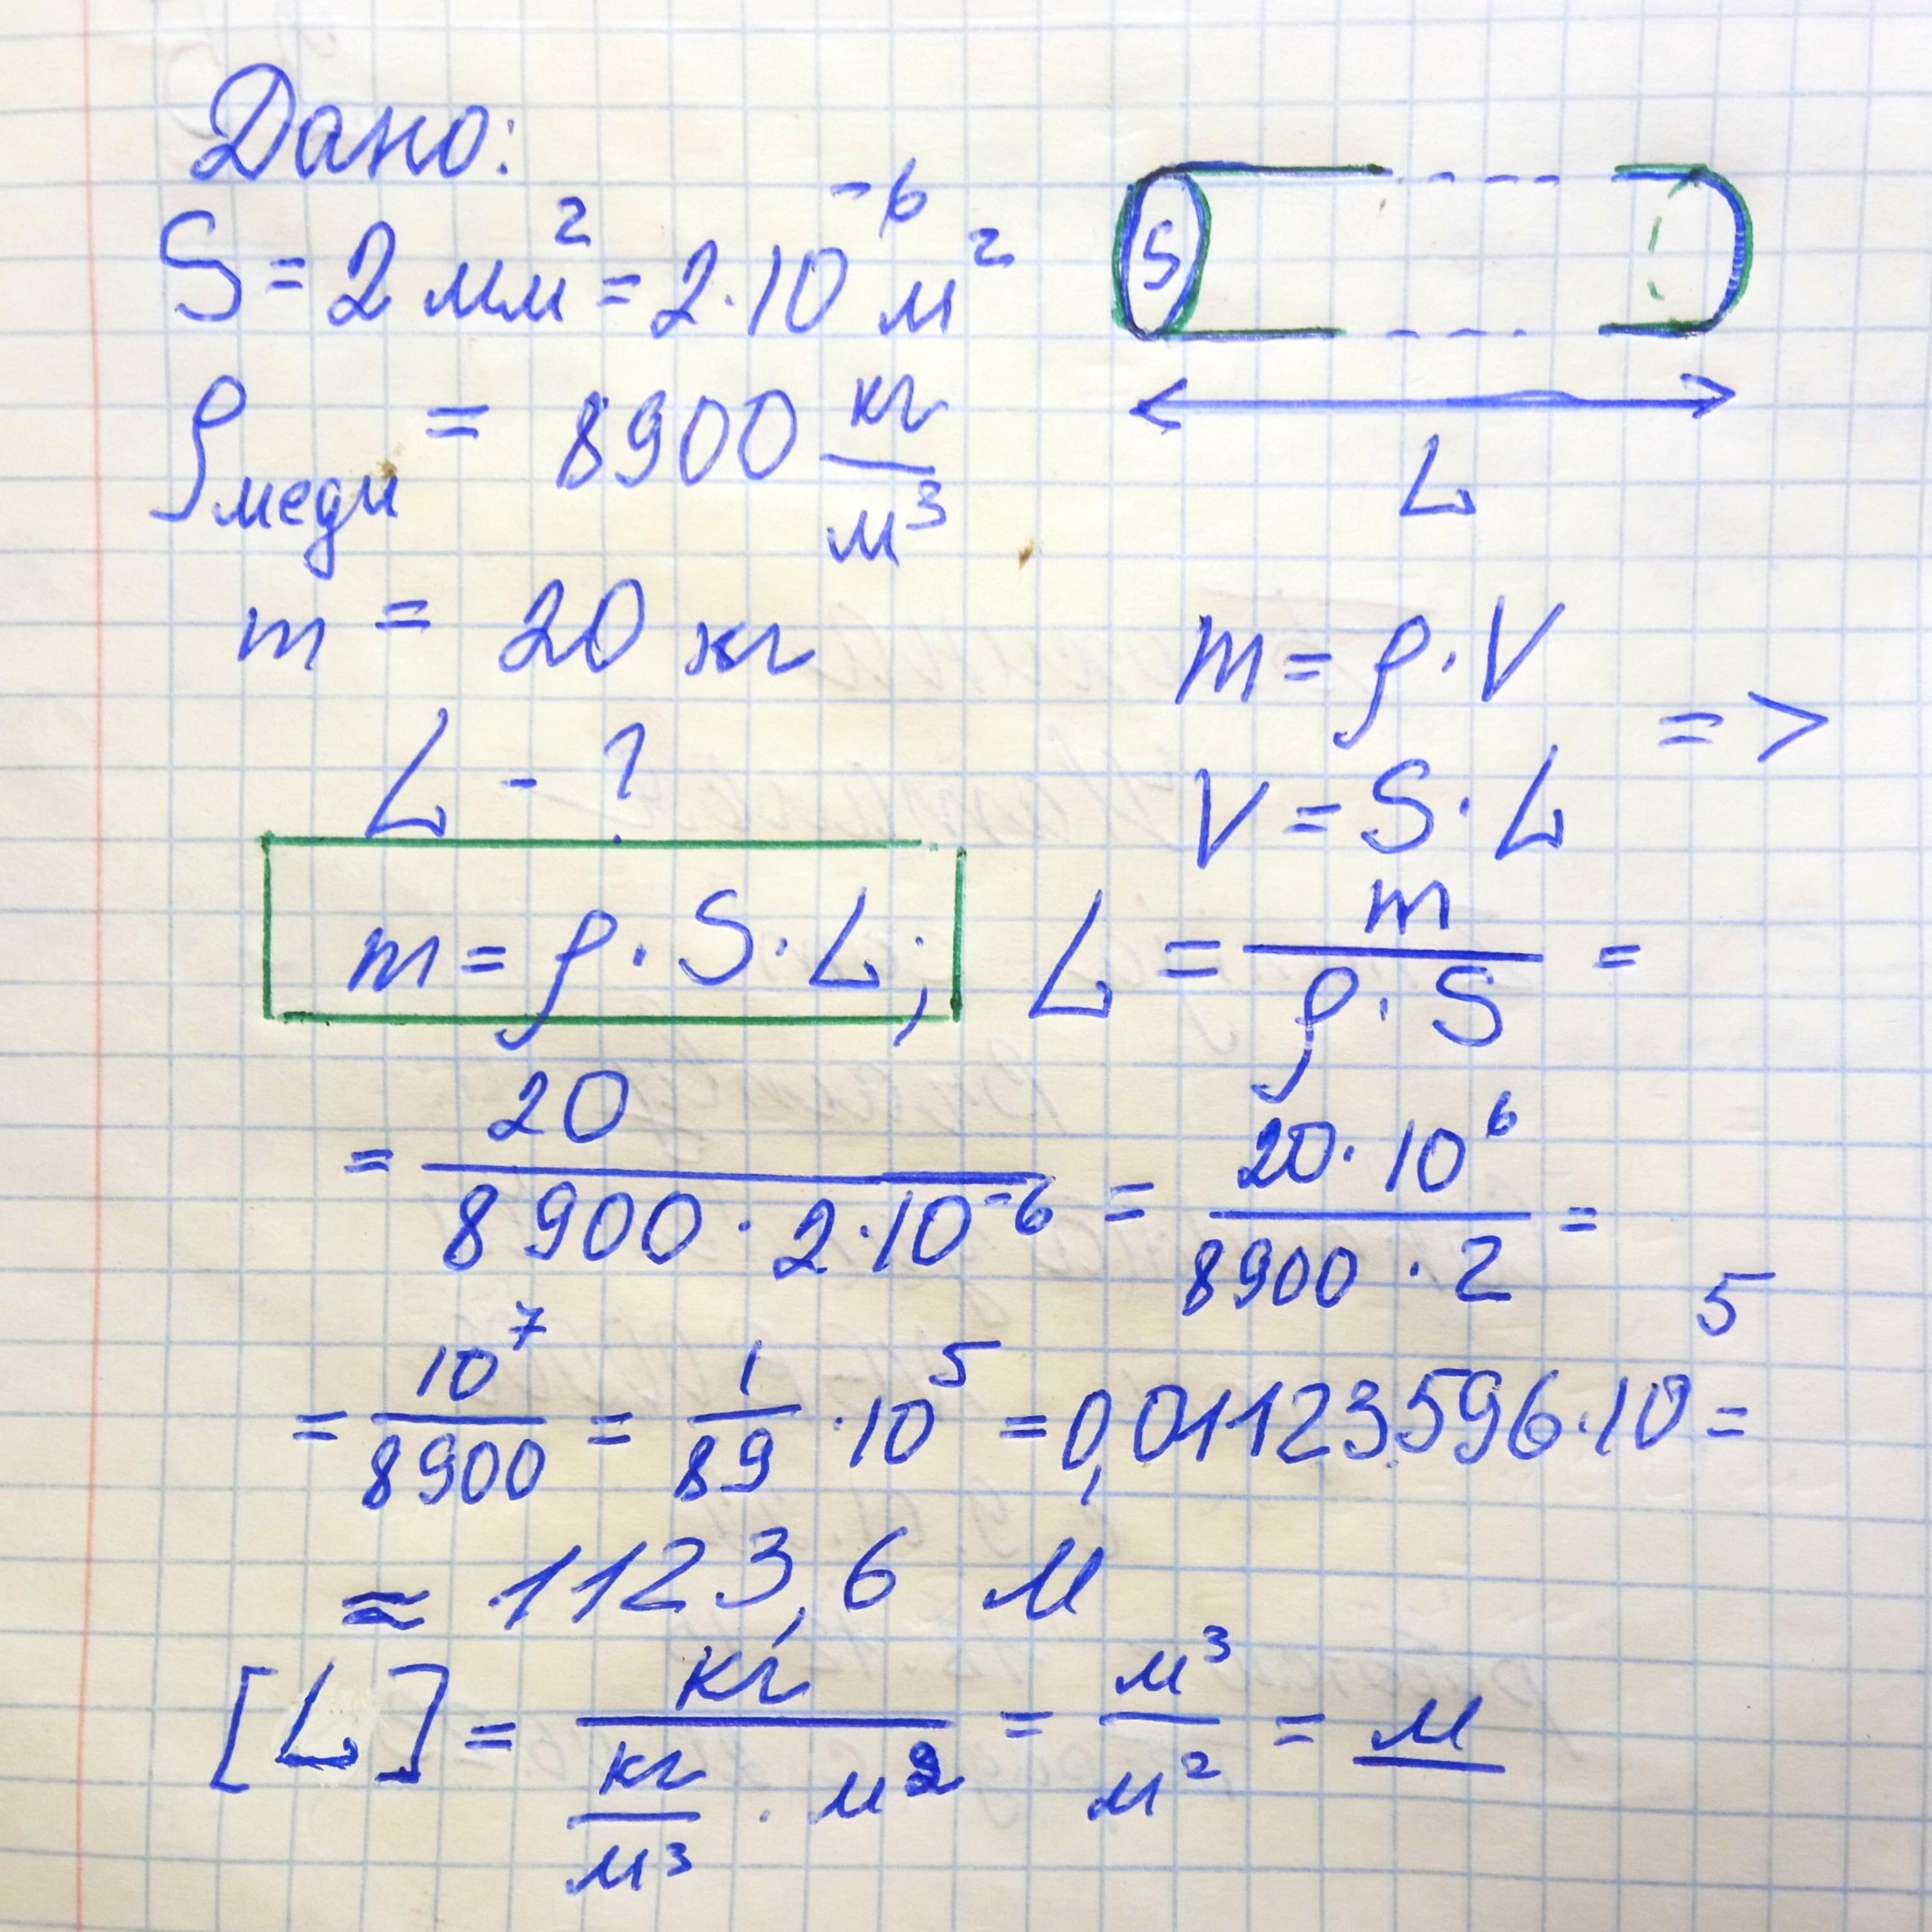 Дано:
S = 2 мм² = 2·10⁻⁶ м²
S
ρмеди = 8900 кг/м³
L
m = 20 кг
m = ρ·V
=>
L - ?
V = S·L
m = ρ·S·L; L = m/(ρ·S) =
= 20/(8900·2·10⁻⁶) = (20·10⁶)/(8900·2) =
= 10⁷/8900 = 1/89 ·10⁵ = 0,01123596·10⁵ =
≈ 1123,6 м
[L] = кг/(кг/м³ · м²) = м³/м² = м